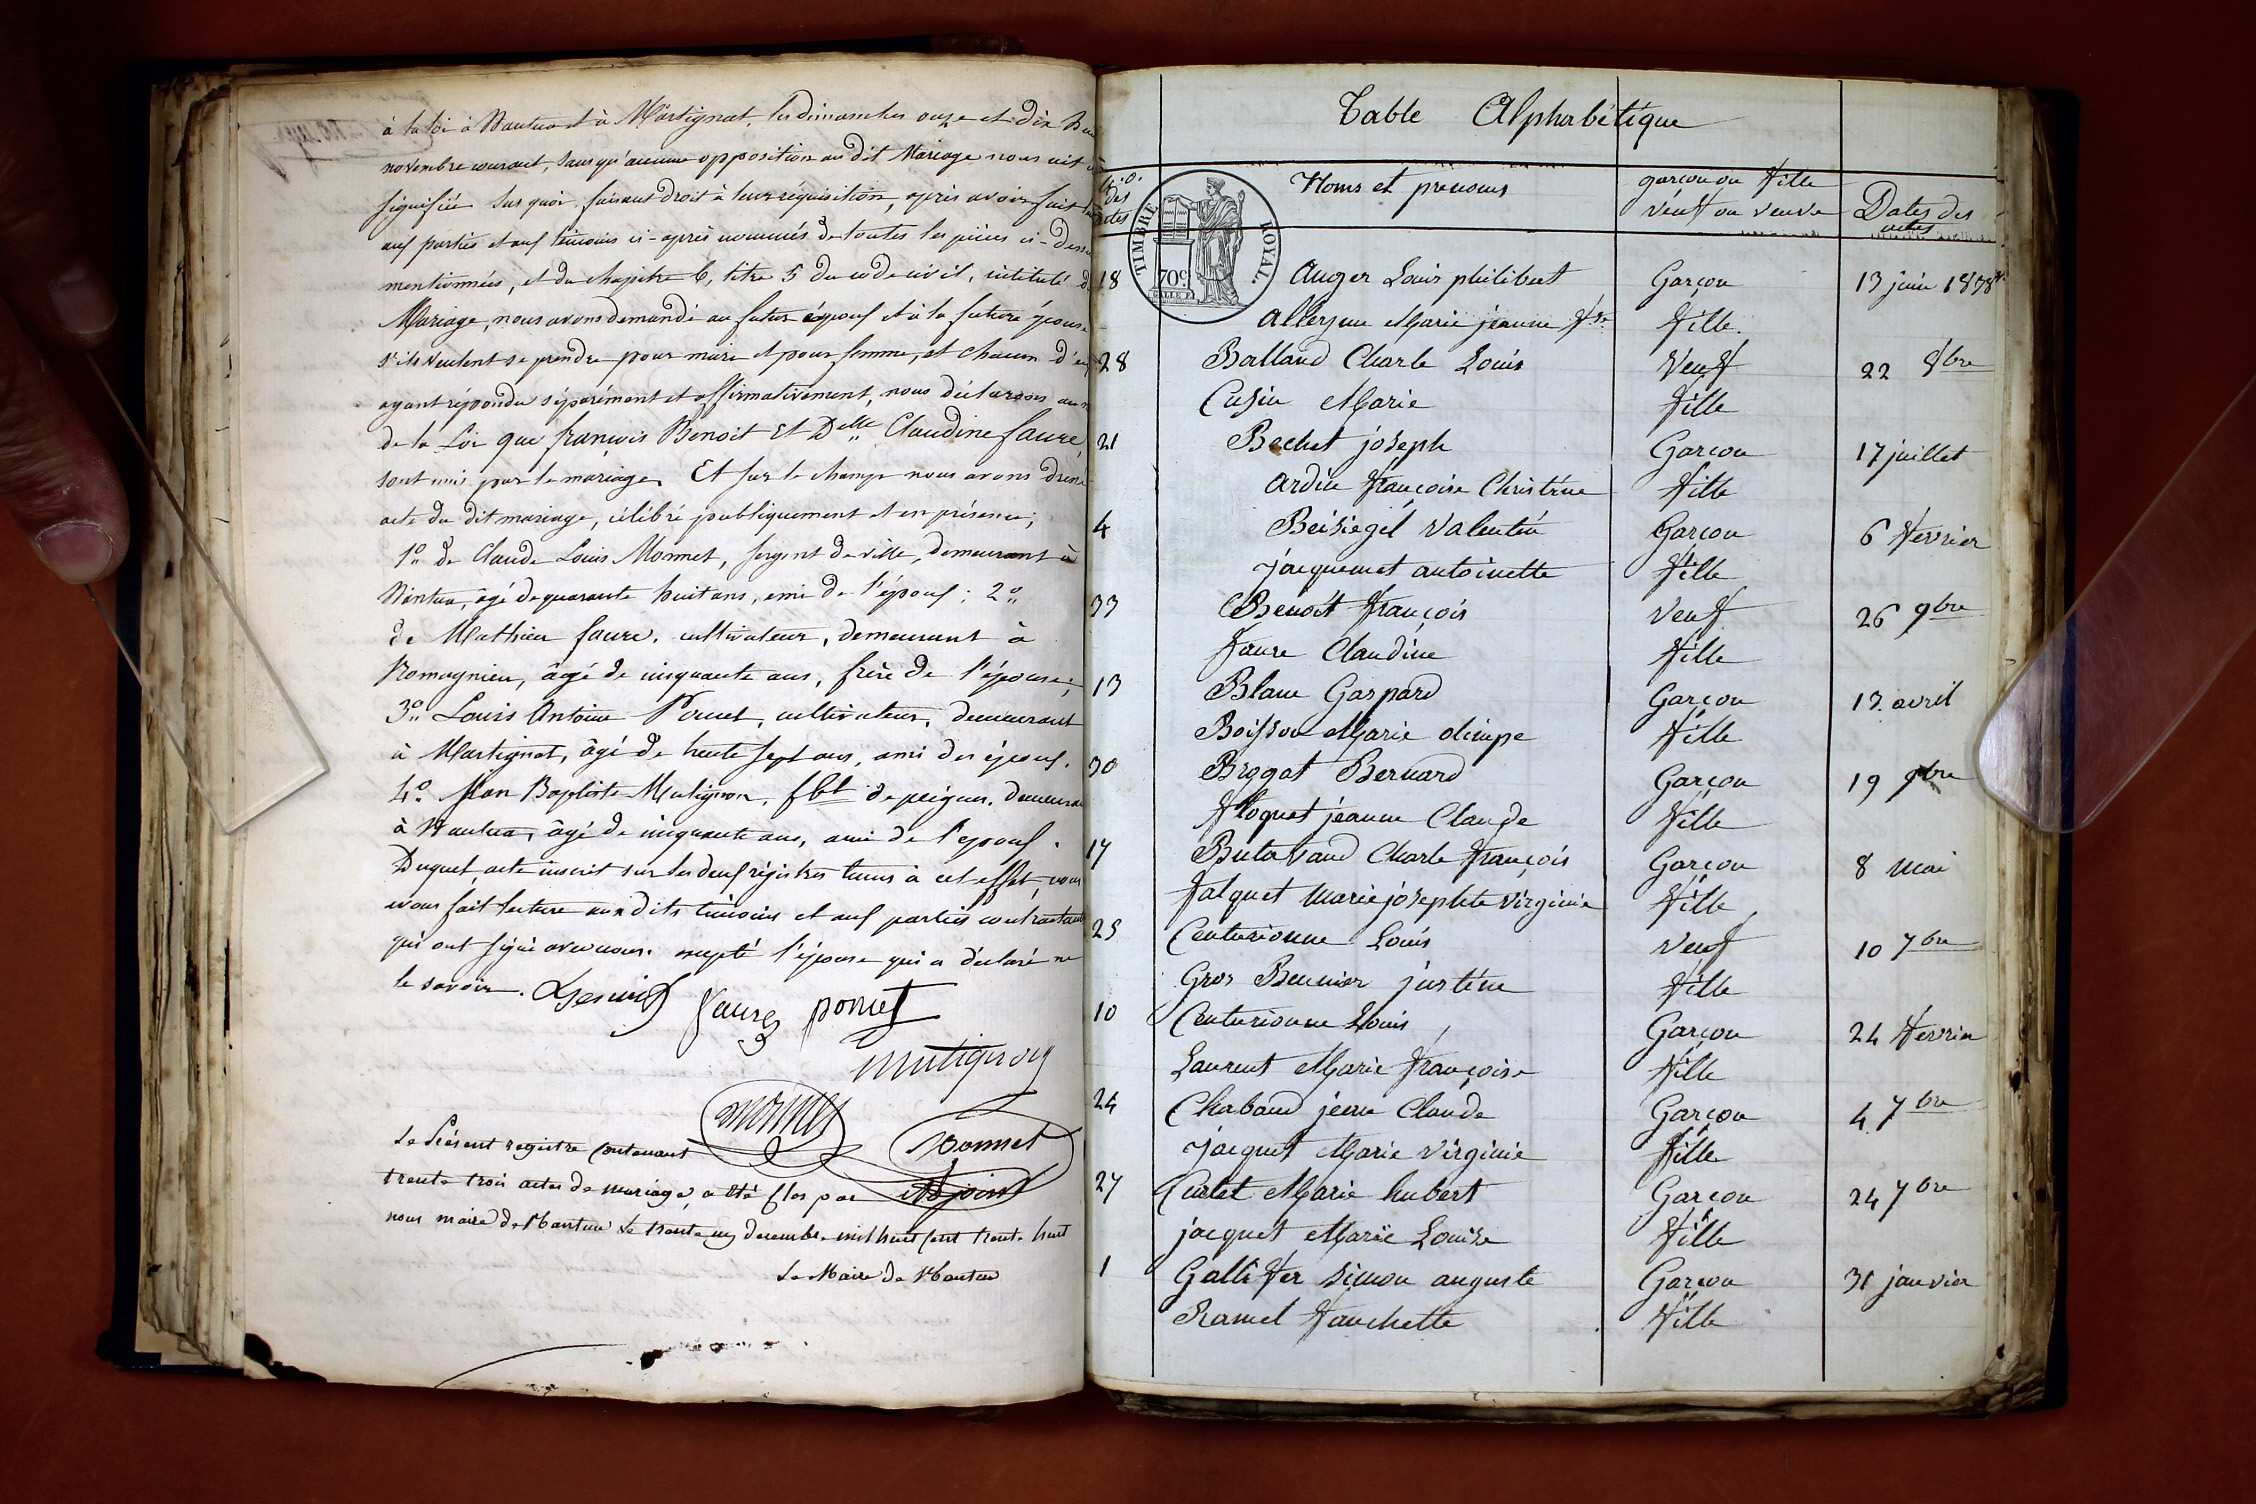 à la loi à Nantua et à Martignat, les dimanches onze et dix
novembre courant, sans qu'aucune opposition au dit Mariage nous ait
signifiée sur quoi, faisant droit à leur réquisition, après avoir fait
aux parties et aux témoins ci-après nommés de toutes les pièces ci-dessus
mentionnées, et du chapitre 6, titre 5 du code civil, intitulé
Mariage, nous avons demandé au futur époux et à la future épouse
s'ils veulent se prendre pour mari et pour femme, et chacun d'eux
ayant répondu séparément et affirmativement, nous déclarons au
de la Loi que françois Benoit Et Delle Claudine faure,
sont unis par le mariage. Et sur le champ nous avons dressé
acte du dit mariage, célébré publiquement et en présence;
1o de Claude Louis Monnet, sergent de ville, demeurant à
Nantua, âgé de quarante huit ans, ami de l'époux; 2o
de Mathieu faure, cultivateur, demeurant à
Romagnieu, âgé de cinquante ans, frère de l'épouse;
3o Louis Antoine Poncet, cultivateur, demeurant
à Martignat, âgé de trente sept ans, ami des époux.
4o Jean Baptiste Mutignon, fbt de peignes, demeurant
à Nantua, âgé de cinquante ans, ami de l'époux.
Duquel acte inscrit sur les deux régistres tenus à cet effet, nous
avons fait lecture aux dits témoins et aux parties contractantes
qui ont signé avec nous. excepté l'épouse qui a déclaré ne
le savoir. Benoit faure poncet
mutignon
monnet
Le Présent registre contenant
trente trois actes de mariage, a été Clos par adjoint
nous maire de Nantua Le trente un décembre mil huit Cent trente huit
Le Maire de Nantua
Table Alphabétique
Nos des actes Noms et prenoms garçon ou fille veuf ou veuve Dates des actes
TIMBRE ROYAL 70c
18 Auger Louis philibert Garçon 13 juin 1838
Marie jeanne Fse fille
28 Balland Charle Louis Veuf 22 8bre
Cusin Marie fille
21 Bechet joseph Garçon 17 juillet
Ardin françoise Christine fille
4 Beisiegel Valentin Garçon 6 fevrier
jacquemet antoinette fille
33 Benoit françois Veuf 26 9bre
faure Claudine fille
13 Blanc Gaspard Garçon 13 avril
Boisson Marie olimpe fille
30 Brogat Bernard Garçon 19 9bre
floquet jeanne Claude fille
17 Butavand Charle françois Garçon 8 mai
falquet Marie josephte virginie fille
25 Centurionne Louis Veuf 10 7bre
Gros Beunier justine fille
10 Centurionne Louis Garçon 24 fevrier
Laurent Marie françoise fille
24 Chabaud jean Claude Garçon 4 7bre
jacquet Marie virginie fille
27 Curlet Marie hubert Garçon 24 7bre
jacquet Marie Louise fille
1 Gallifer simon auguste Garçon 31 janvier
Ramel fanchette fille